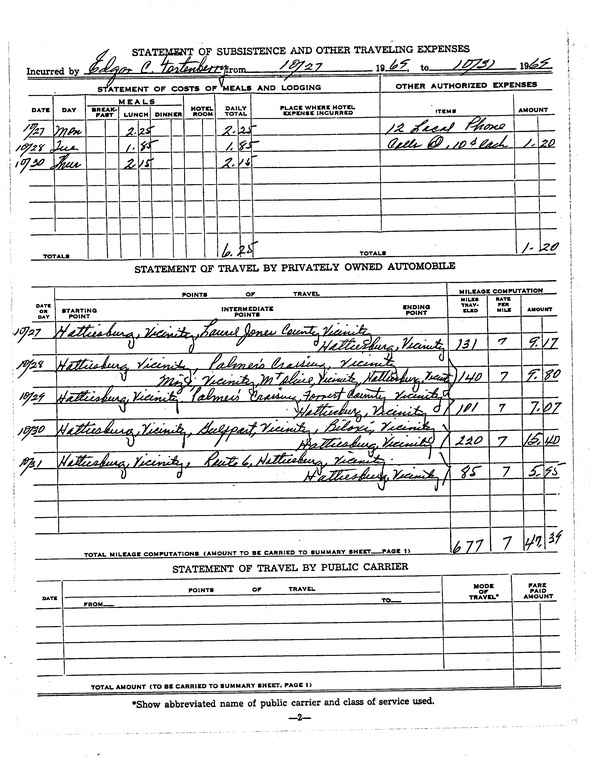 STATEMENT OF SUBSISTENCE AND OTHER TRAVELING EXPENSES
Incurred by Edgar C. Fortenberry from 10/27 1965, to 10/31 1965
STATEMENT OF COSTS OF MEALS AND LODGING OTHER AUTHORIZED EXPENSES
MEALS
DATE DAY BREAK-FAST LUNCH DINNER HOTEL ROOM DAILY TOTAL PLACE WHERE HOTEL EXPENSE INCURRED ITEMS AMOUNT
10/27 Mon 2.25 2.25 12 Local Phone
10/28 Tue 1.85 1.85 Calls @ .10¢ each 1.20
10/30 Thur 2.15 2.15
TOTALS 6.25 TOTALS 1.20
STATEMENT OF TRAVEL BY PRIVATELY OWNED AUTOMOBILE
POINTS OF TRAVEL MILEAGE COMPUTATION
DATE OR DAY STARTING POINT INTERMEDIATE POINTS ENDING POINT MILES TRAV-ELED RATE PER MILE AMOUNT
10/27 Hattiesburg, Vicinity, Laurel Jones County Vicinity
Hattiesburg, Vicinity 131 7 9.17
10/28 Hattiesburg Vicinity, Palmers Crossing, Vicinity
Vicinity, Vicinity, Hattiesburg Vicinity 140 7 9.80
10/29 Hattiesburg Vicinity, Palmers Crossing Forrest County Vicinity
Hattiesburg, Vicinity 101 7 7.07
10/30 Hattiesburg, Vicinity, Gulfport, Vicinity, Biloxi, Vicinity
Hattiesburg Vicinity 220 7 15.40
10/31 Hattiesburg, Vicinity, Route 6, Hattiesburg, Vicinity.
Hattiesburg Vicinity 85 7 5.95
TOTAL MILEAGE COMPUTATIONS (AMOUNT TO BE CARRIED TO SUMMARY SHEET PAGE 1) 677 7 47.39
STATEMENT OF TRAVEL BY PUBLIC CARRIER
DATE POINTS OF TRAVEL MODE OF TRAVEL* FARE PAID AMOUNT
FROM TO
TOTAL AMOUNT (TO BE CARRIED TO SUMMARY SHEET, PAGE 1)
*Show abbreviated name of public carrier and class of service used.
—2—